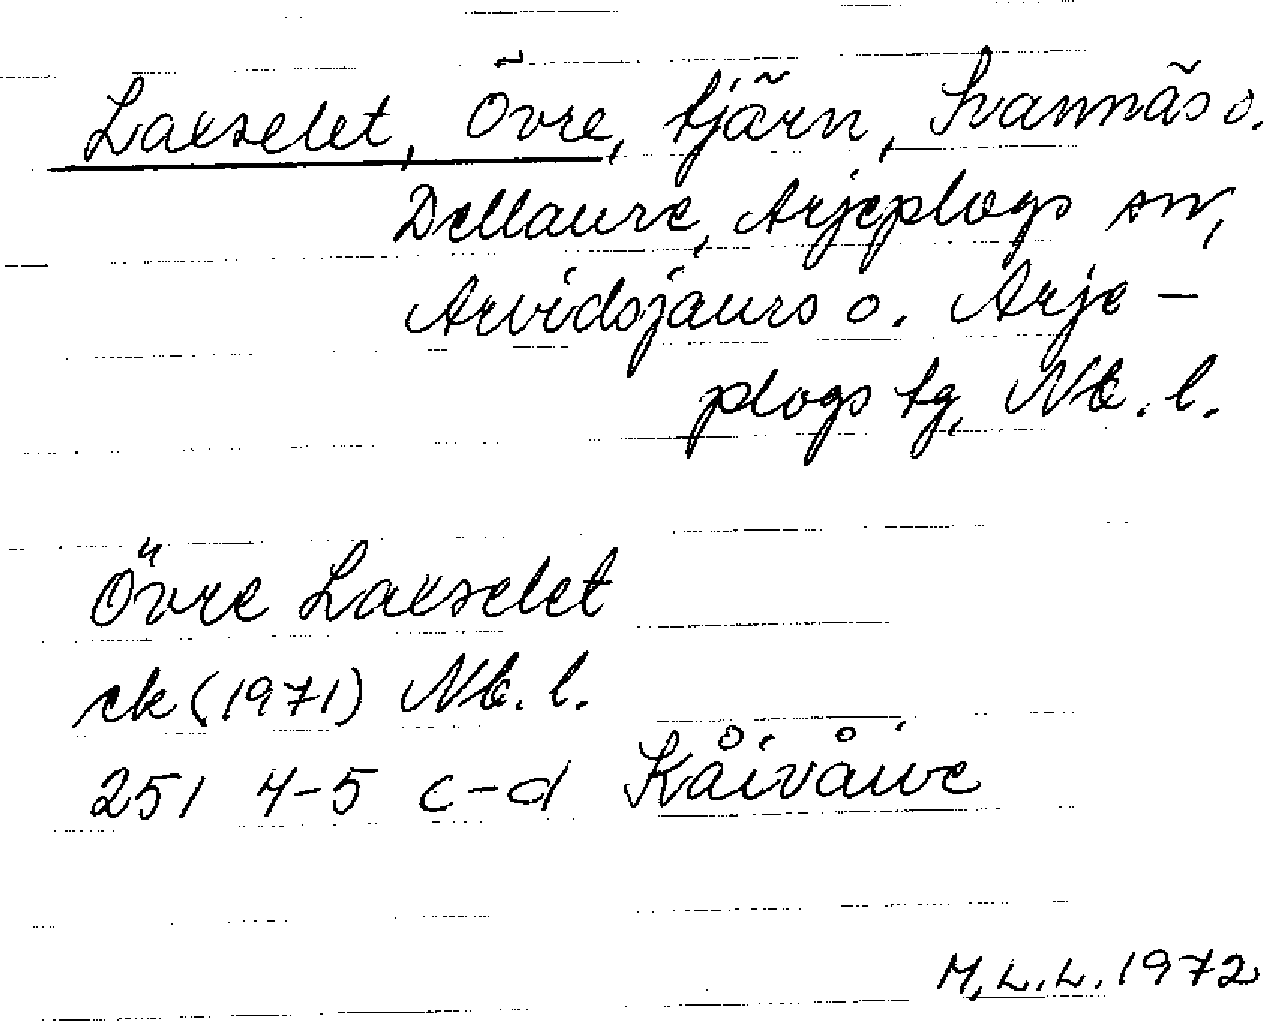 Laxselet, Övre, tjärn, Svannäs o.
Dellaure, Arjeplogs sn,
Arvidsjaurs o. Arje-
plogs tg, Nb. l.
Övre Laxselet
ek (1971) Nb. l.
251 4-5 c-d Kåivåive
M.L.L. 1972